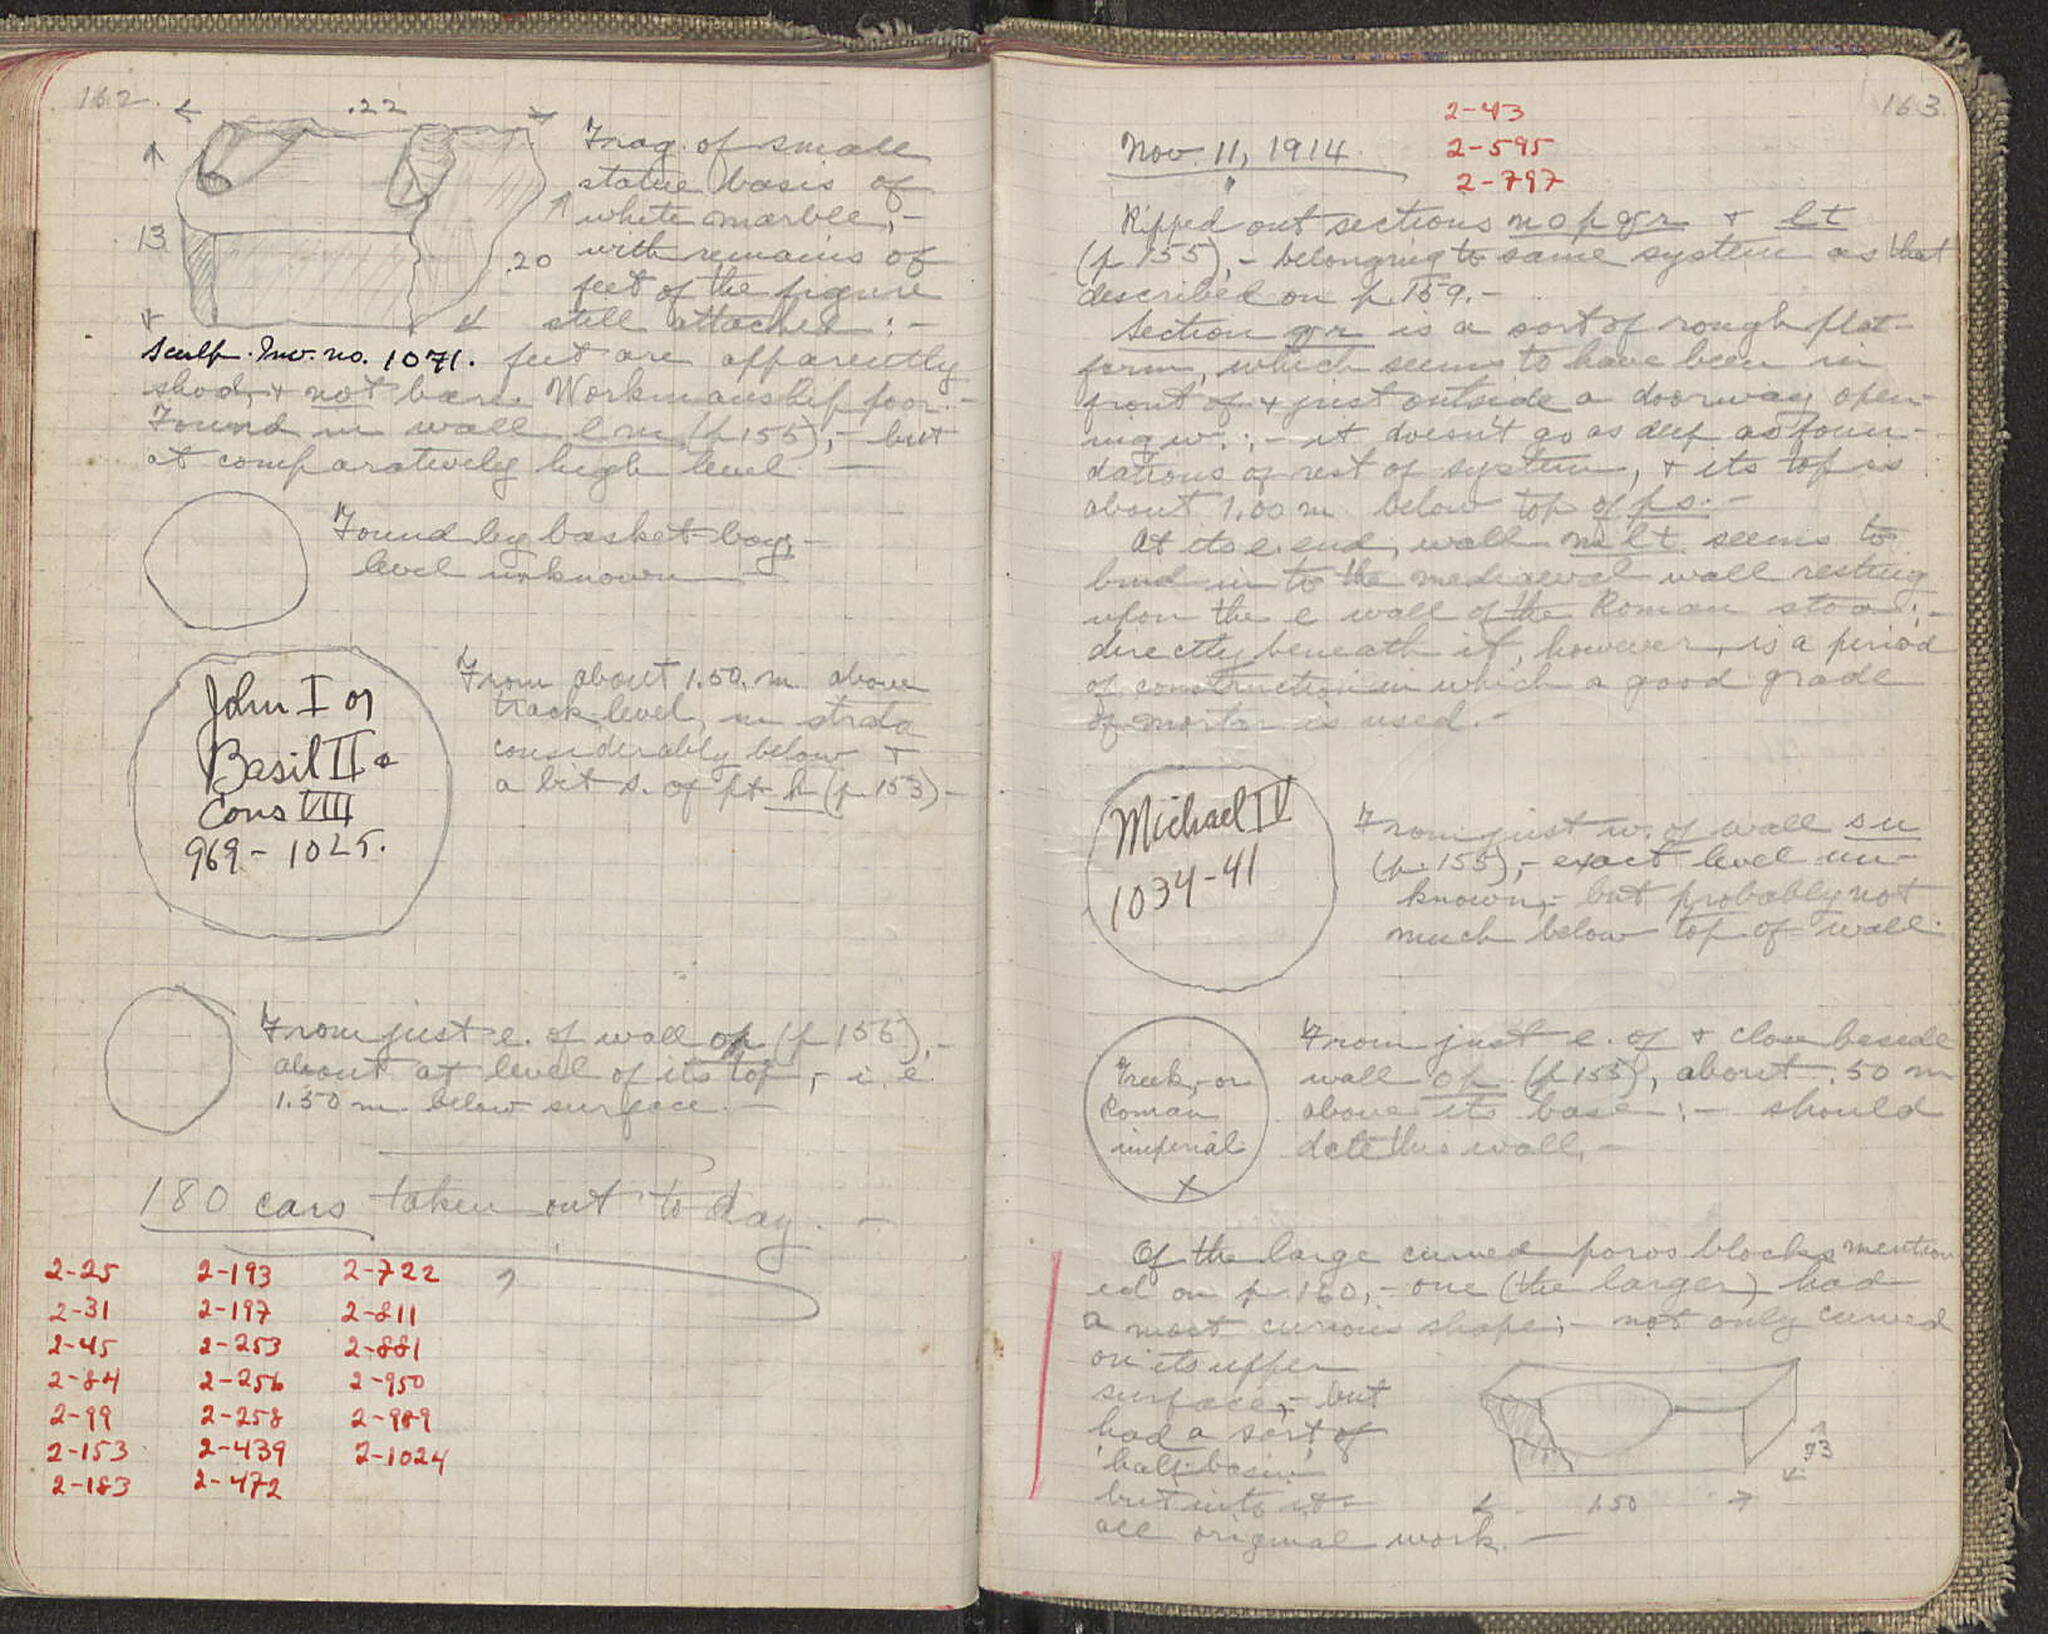 162.
.22
Frag. of small
statue basis of
white marble,-
13
.20
with remains of
feet of the figure
still attached :-
Sculp. Inv. no. 1071. feet are apparently
shod, + not bare. Workmanship poor.-
Found in wall l m (p 155),- but
at comparatively high level. —
Found by basket-boy,-
level unknown —
John I or
Basil II +
Cons VIII
969 - 1025.
From about 1.50. m above
track-level, in strata
considerably below +
a bit s. of pt h (p. 153)-
From just e. of wall op (p 155),-
about at level of its top,- i.e.
1.50 m. below surface.—
180 cars taken out to day. —
2-25 2-193 2-722
2-31 2-197 2-811
2-45 2-253 2-881
2-84 2-256 2-950
2-99 2-258 2-989
2-153 2-439 2-1024
2-183 2-472
163
2-43
2-595
2-797
Nov. 11, 1914.
Ripped out sections n o p q r + l t
(p 155),- belonging to same system as that
described on p. 159.-
Section q r is a sort of rough plat-
form, which seems to have been in
front of + just outside a doorway open-
ing w. :- it doesn't go as deep as foun-
dations of rest of system, + its top is
about 1.00 m below top of p s.-
At its e. end, wall m l t seems to
bind in to the mediaeval wall resting
upon the e wall of the Roman stoa ;-
directly beneath it, however, is a period
of construction in which a good grade
of mortar is used.-
Michael IV
1034-41
From just w. of wall s u
(p. 155),- exact level un-
known,- but probably not
much below top of wall.
Greek,- or
Roman
imperial.
x
From just e. of + close beside
wall op (p 155), about .50 m
above its base :- should
date this wall.-
Of the large curved poros blocks mention
ed on p. 160,- one (the larger) had
a most curious shape ;- not only curved
on its upper
surface,- but
had a sort of
'half-basin'
cut into it -
all original work. —
.93
1.50